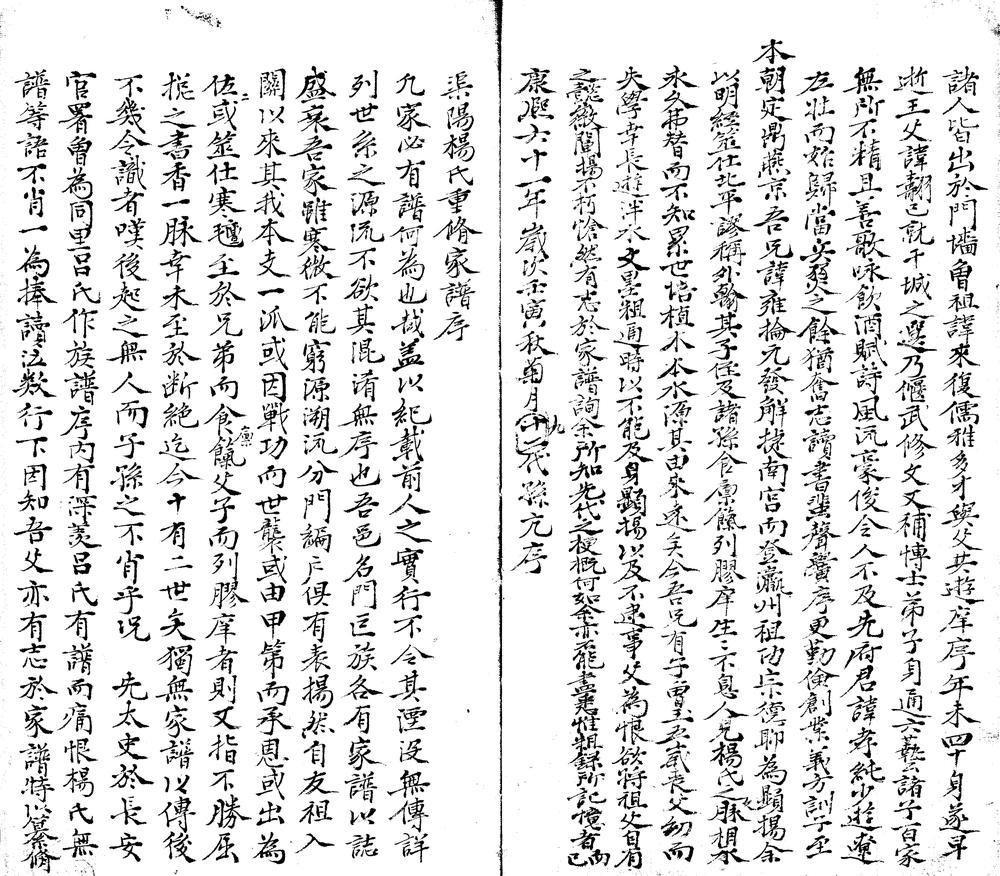 諸人皆出於門墻魯祖諱來復儒雅多才與父共遊庠序年未四十身遂早
逝王父諱翻已就干城之選乃偃武修文又補博士弟子身通六藝諸子百家
無所不精且善歌咏飲酒賦詩風流豪俊令人不及先府君諱孝純少遊遼
左壯而始歸當兵燹之餘猶奮志讀書蜚聲黌序更勤儉創業義方訓子至
本朝定鼎燕京吾兄諱雍掄元發解捷南宫而登瀛州祖功宗德聊為顯揚余
以明經筮仕北平謬稱外翰其子侄及諸孫食廩餼列膠庠生二不息人見楊氏之脉相承
永久弗替而不知累世培植木本水源其由來遠矣今吾兄有子曹玉五歲喪父幼而
失學幸長遊泮水文墨粗通時以不能及身顯揚以及不逮事父為恨欲將祖父自有
之懿徽闡揚不朽愴然有志於家譜詢余所知先代之梗概何如余亦不能盡悉惟粗録所記憶者而已
康熙六十一年歲次壬寅秋菊月九十二代孫亢序
渠陽楊氏重脩家譜序
凢家必有譜何為也哉盖以紀載前人之實行不令其湮没無傳詳
列世系之源流不欲其混淆無序也吾邑名門巨族各有家譜以誌
盛衰吾家雖寒微不能窮源溯流分門編户俱有表揚然自友祖入
關以來其我本支一派或因戰功而世襲或由甲第而承恩或出為
仕或筮仕寒氊至於兄弟而食廪餼父子而列膠庠者則又指不勝屈
揔之書香一脉幸未至於斷絶迄今十有二世矣獨無家譜以傳後
不幾令識者嘆後起之無人而子孫之不肖乎况 先太史於長安
官署魯為同里吕氏作族譜序内有深羡吕氏有譜而痛恨楊氏無
譜等語不肖一為捧讀泣数行下因知吾父亦有志於家譜特以纂脩